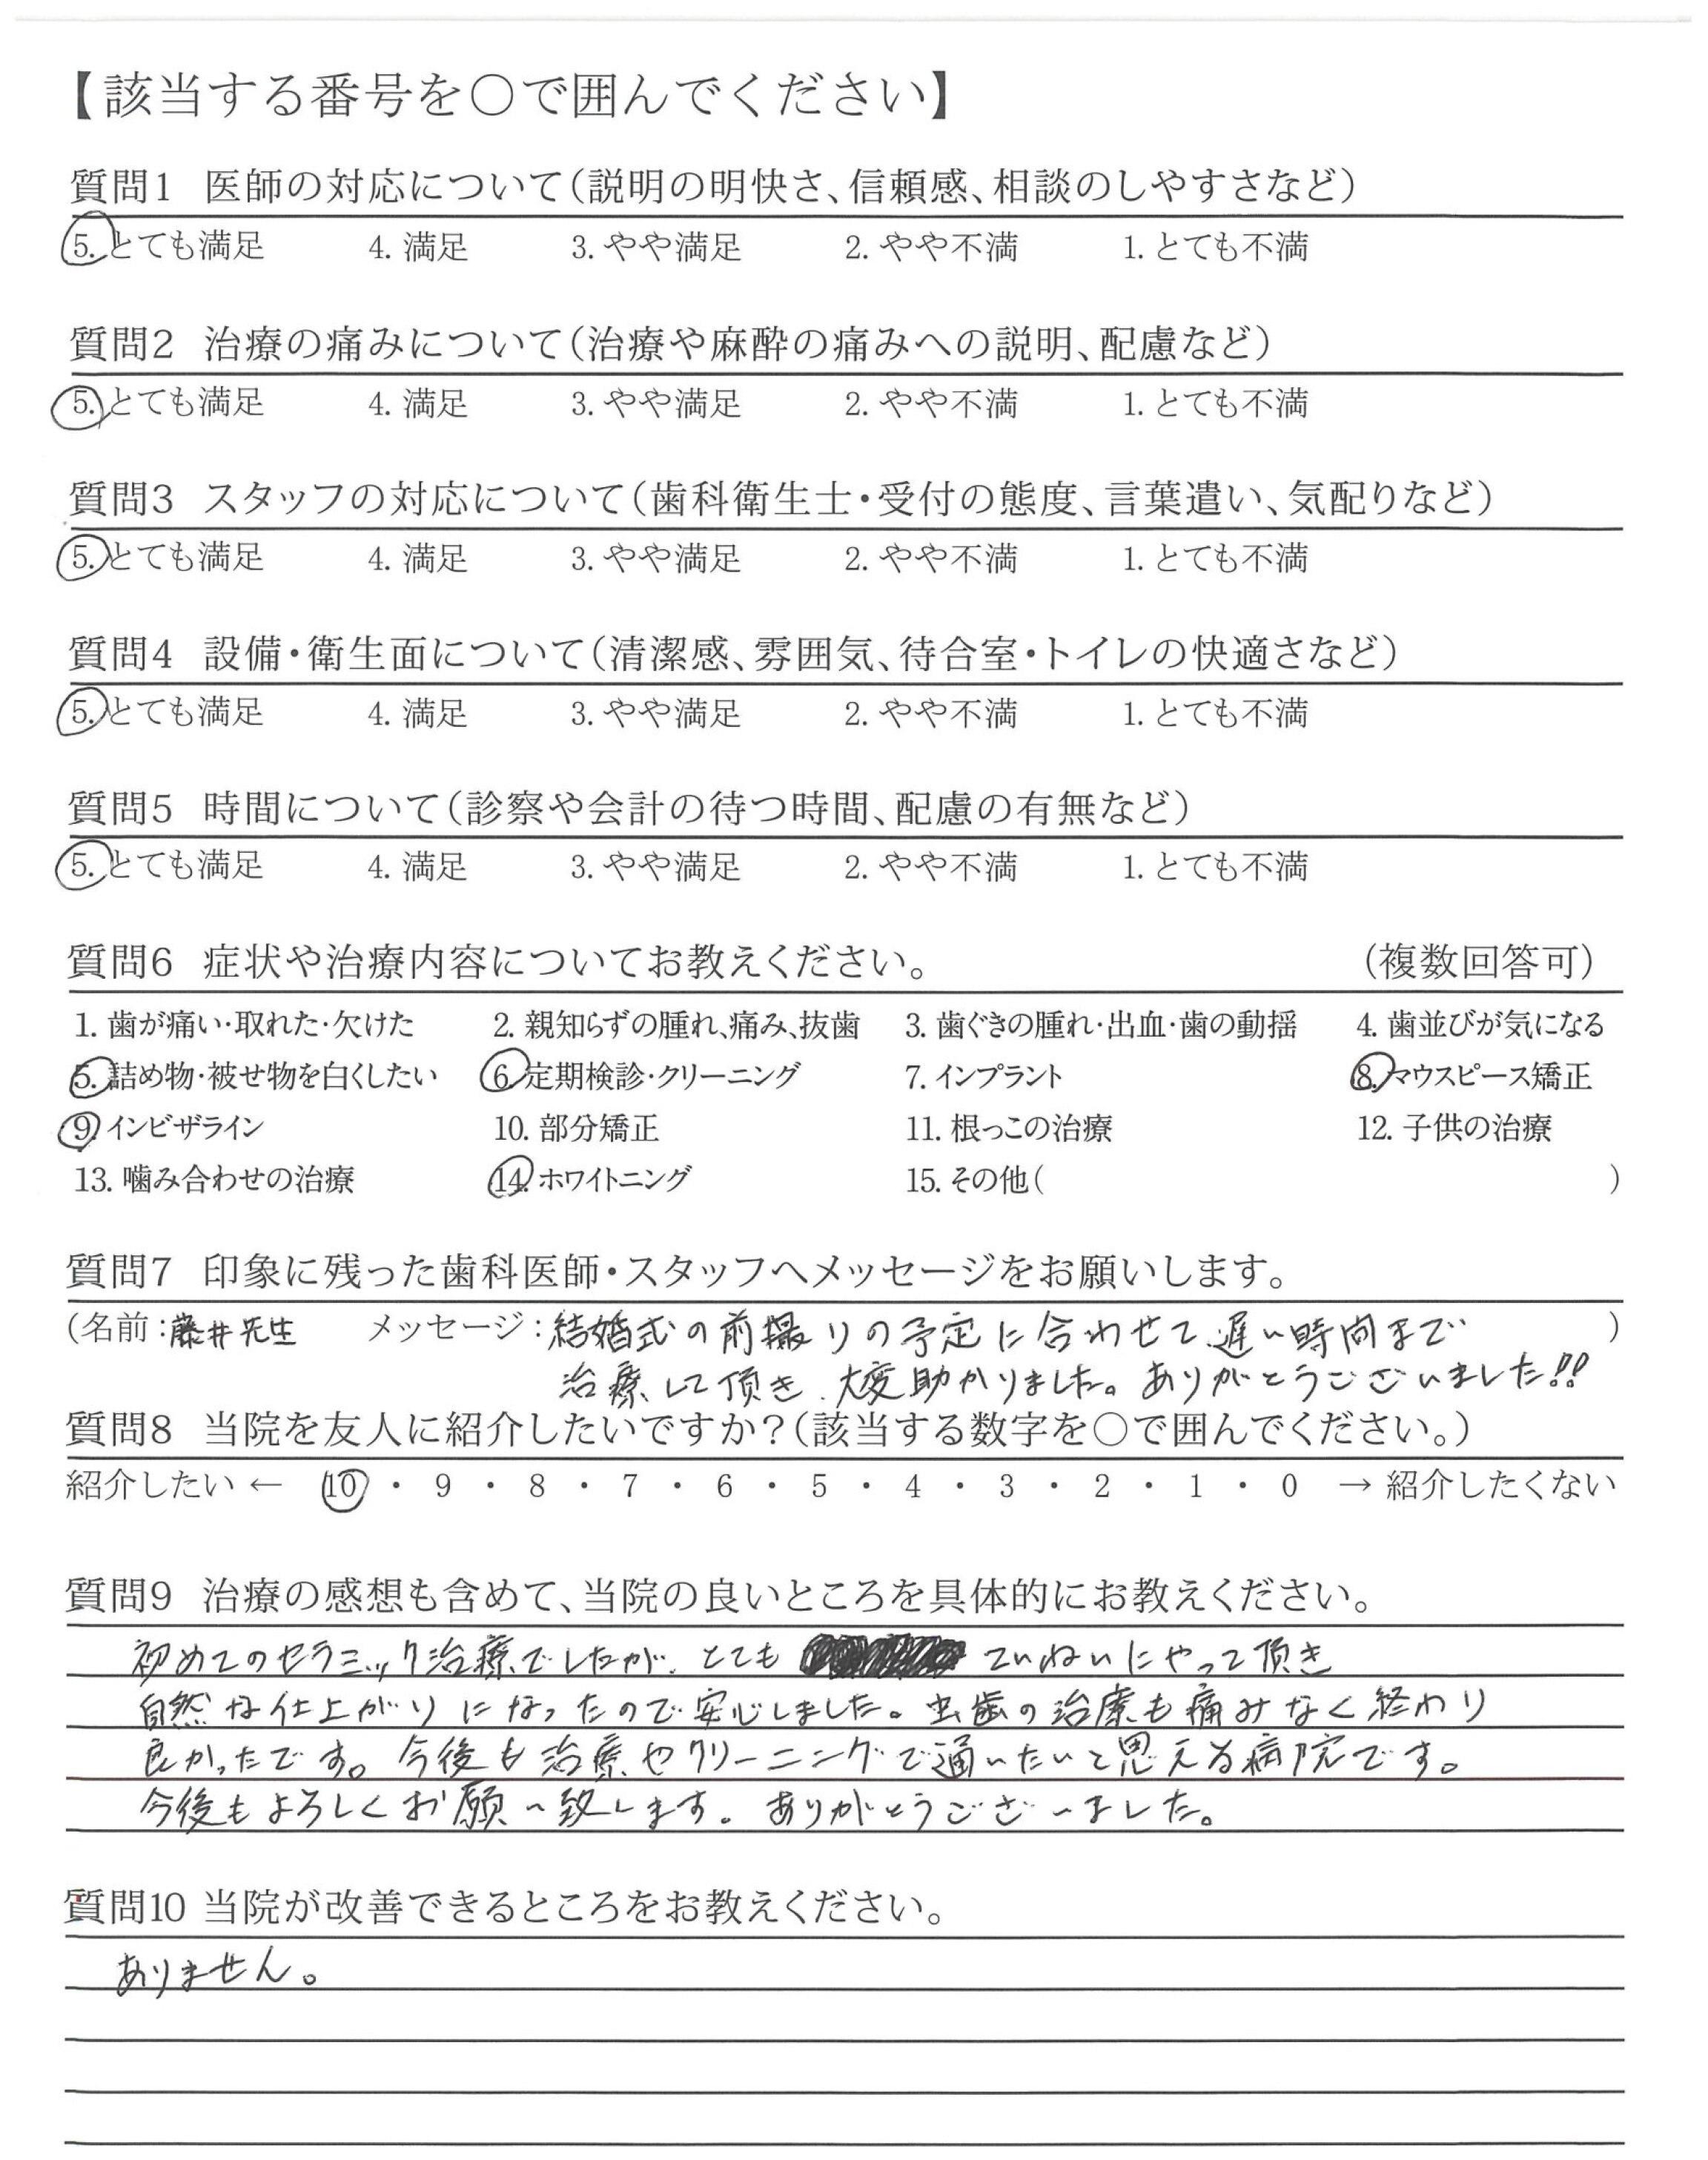 【該当する番号を○で囲んでください】
質問1 医師の対応について（説明の明快さ、信頼感、相談のしやすさなど）
5. とても満足 4. 満足 3. やや満足 2. やや不満 1. とても不満
質問2 治療の痛みについて（治療や麻酔の痛みへの説明、配慮など）
5. とても満足 4. 満足 3. やや満足 2. やや不満 1. とても不満
質問3 スタッフの対応について（歯科衛生士・受付の態度、言葉遣い、気配りなど）
5. とても満足 4. 満足 3. やや満足 2. やや不満 1. とても不満
質問4 設備・衛生面について（清潔感、雰囲気、待合室・トイレの快適さなど）
5. とても満足 4. 満足 3. やや満足 2. やや不満 1. とても不満
質問5 時間について（診察や会計の待つ時間、配慮の有無など）
5. とても満足 4. 満足 3. やや満足 2. やや不満 1. とても不満
質問6 症状や治療内容についてお教えください。 （複数回答可）
1. 歯が痛い・取れた・欠けた 2. 親知らずの腫れ、痛み、抜歯 3. 歯ぐきの腫れ・出血・歯の動揺 4. 歯並びが気になる
5. 詰め物・被せ物を白くしたい 6. 定期検診・クリーニング 7. インプラント 8. マウスピース矯正
9. インビザライン 10. 部分矯正 11. 根っこの治療 12. 子供の治療
13. 噛み合わせの治療 14. ホワイトニング 15. その他（ ）
質問7 印象に残った歯科医師・スタッフへメッセージをお願いします。
（名前：藤井先生 メッセージ：結婚式の前撮りの予定に合わせて、遅い時間まで ）
治療して頂き、大変助かりました。ありがとうございました!!
質問8 当院を友人に紹介したいですか？（該当する数字を○で囲んでください。）
紹介したい ← 10 ・ 9 ・ 8 ・ 7 ・ 6 ・ 5 ・ 4 ・ 3 ・ 2 ・ 1 ・ 0 → 紹介したくない
質問9 治療の感想も含めて、当院の良いところを具体的にお教えください。
初めてのセラミック治療でしたが、とても ていねいにやって頂き
自然な仕上がりになったので安心しました。虫歯の治療も痛みなく終わり
良かったです。今後も治療やクリーニングで通いたいと思える病院です。
今後もよろしくお願い致します。ありがとうございました。
質問10 当院が改善できるところをお教えください。
ありません。